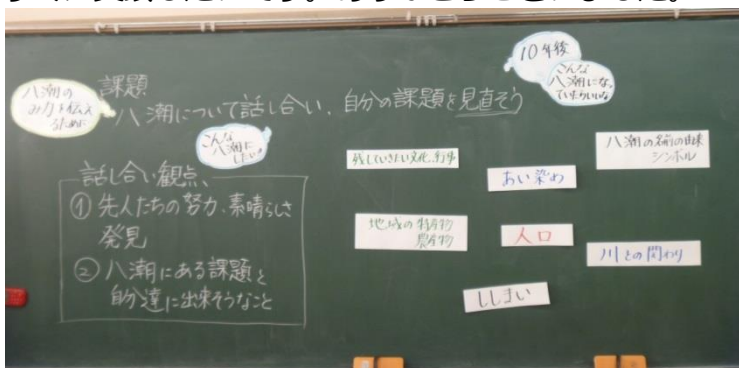 八潮の
み力を伝え
るために
課題
八潮について話し合い、自分の課題を見直そう
こんな
八潮に
したい。
10年後
こんな
八潮になっ
ていたらいいな
話し合い観点
① 先人たちの努力、素晴らしさ
発見
② 八潮にある課題と
自分達に出来そうなこと
残していきたい文化、行事
あい染め
八潮の名前の由来
シンボル
地域の特産物
農産物
人口
川との関わり
ししまい